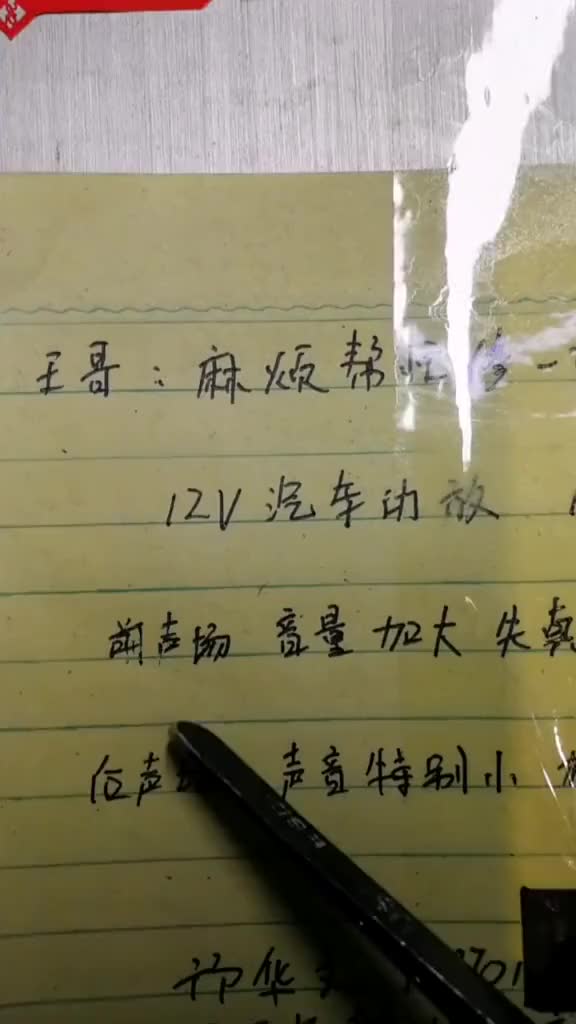 王哥：麻烦帮忙修一
12V 汽车功放
前声场 音量加大 失真
后声场 声音特别小
华